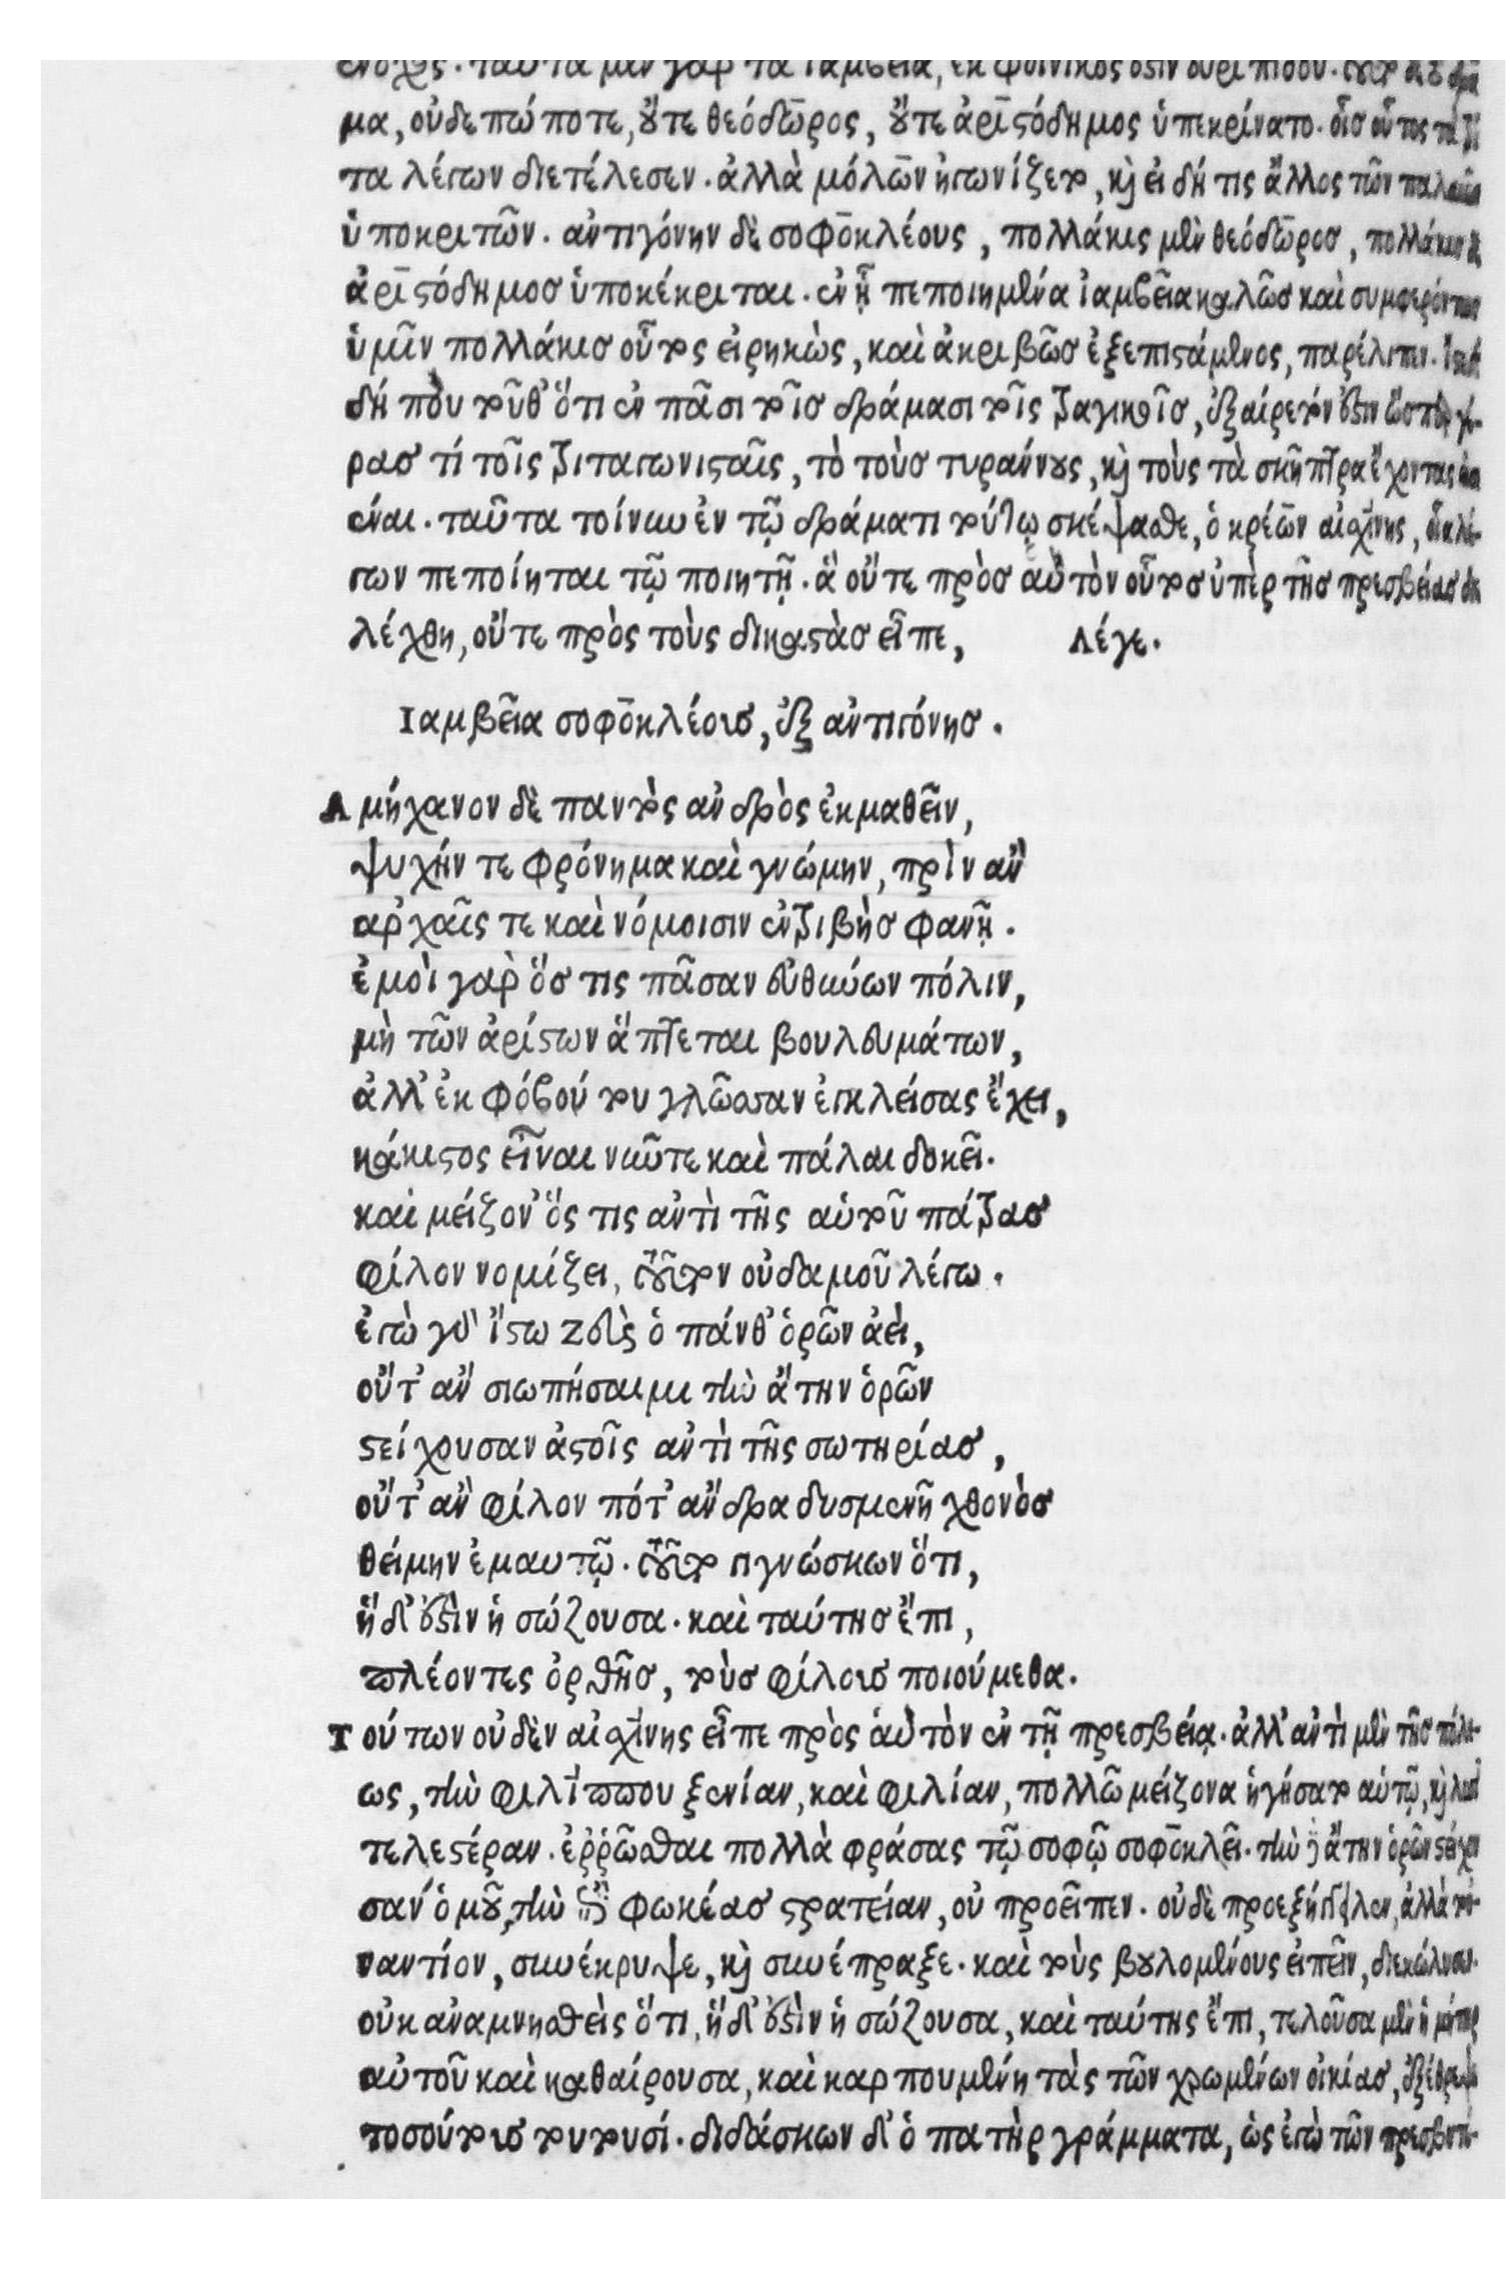 ταῦτα μὲν γὰρ τὰ ἰαμβεῖα, ἐκ φοίνικος ἐστὶν εὐριπίδου. τοῦτο δὲ τὸ δρᾶ
μα, οὐδε πώποτε, οὔτε θεόδωρος, οὔτε ἀριστόδημος ὑπεκρίνατο. οἷσ οὗτος τὰ τρί
τα λέγων διετέλεσεν. ἀλλὰ μόλων ἠγωνίζετο, καὶ εἰ δή τις ἄλλος τῶν παλαιῶν
ὑποκριτῶν. ἀντιγόνην δὲ σοφοκλέους, πολλάκις μὲν θεόδωροσ, πολλάκισ δὲ
ἀριστόδημοσ ὑποκέκριται. ἐν ᾗ πεποιημένα ἰαμβεῖα καλῶσ καὶ συμφερόντως
ὑμῖν πολλάκισ οὗτος εἰρηκὼς, καὶ ἀκριβῶσ ἐξεπιστάμενος, παρέλιπεν. ἴστε
δή που τοῦθ' ὅτι ἐν πᾶσι τοῖσ δράμασι τοῖς τραγικοῖσ, ἐξαίρετόν ἐστιν ὥσπερ γέ-
ρασ τί τοῖς τριταγωνισταῖς, τὸ τοὺσ τυράννους, καὶ τοὺς τὰ σκῆπτρα ἔχοντας εἰσ
ιέναι. ταῦτα τοίνυν ἐν τῷ δράματι τούτῳ σκέψασθε, ὁ κρέων αἰσχίνης, οἷα λέ-
γων πεποίηται τῷ ποιητῇ. ἃ οὔτε πρὸσ αὑτὸν οὗτοσ ὑπὲρ τῆσ πρεσβείασ διε
λέχθη, οὔτε πρὸς τοὺς δικαστὰσ εἶπε, Λέγε.
Ιαμβεῖα σοφοκλέουσ, ἐξ ἀντιγόνησ.
Αμήχανον δὲ παντὸς ἀνδρὸς ἐκμαθεῖν,
ψυχήν τε φρόνημα καὶ γνώμην, πρὶν ἂν
ἀρχαῖς τε καὶ νόμοισιν ἐντριβὴσ φανῇ.
ἐμοὶ γὰρ ὅσ τις πᾶσαν εὐθύνων πόλιν,
μὴ τῶν ἀρίστων ἅπτεται βουλευμάτων,
ἀλλ' ἐκ φόβού του γλῶσσαν ἐγκλείσας ἔχει,
κάκιστος εἶναι νῦν τε καὶ πάλαι δοκεῖ.
καὶ μείζον' ὅς τις ἀντὶ τῆς αὑτοῦ πάτρασ
φίλον νομίζει, τοῦτον οὐδαμοῦ λέγω.
ἐγὼ γὰρ ἴστω ζεὺς ὁ πάνθ' ὁρῶν ἀεὶ,
οὔτ' ἂν σιωπήσαιμι τὴν ἄτην ὁρῶν
στείχουσαν ἀστοῖς ἀντὶ τῆς σωτηρίασ,
οὔτ' ἂν φίλον πότ' ἄνδρα δυσμενῆ χθονὸσ
θείμην ἐμαυτῷ. τοῦτο γιγνώσκων ὅτι,
ἥδ' ἐστὶν ἡ σώζουσα. καὶ ταύτησ ἔπι,
πλέοντες ὀρθῆσ, τοὺσ φίλουσ ποιούμεθα.
Τούτων οὐδὲν αἰσχίνης εἶπε πρὸς αὑτὸν ἐν τῇ πρεσβείᾳ. ἀλλ' ἀντὶ μὲν τῆσ πόλε-
ως, τὴν φιλίππου ξενίαν, καὶ φιλίαν, πολλῶ μείζονα ἡγήσατο αὑτῷ, καὶ λυσι
τελεστέραν. ἐῤῥῶσθαι πολλὰ φράσας τῷ σοφῷ σοφοκλεῖ. τὴν δὲ ἄτην ὁρῶν στείχου
σαν ὁμοῦ, τὴν ἐπὶ φωκέασ στρατείαν, οὐ προεῖπεν. οὐδὲ προεξήγγειλεν, ἀλλὰ τοὐ-
ναντίον, συνέκρυψε, καὶ συνέπραξε. καὶ τοὺς βουλομένους εἰπεῖν, διεκώλυσεν.
οὐκ ἀναμνησθεὶς ὅτι, ἥδ' ἐστὶν ἡ σώζουσα, καὶ ταύτης ἔπι, τελοῦσα μὲν ἡ μήτηρ
αὐτοῦ καὶ καθαίρουσα, καὶ καρπουμένη τὰς τῶν χρωμένων οἰκίασ, ἐξέθρεψε
τοσούτουσ τουτουσί. διδάσκων δ' ὁ πατὴρ γράμματα, ὡς ἐγὼ τῶν πρεσβυτέ-